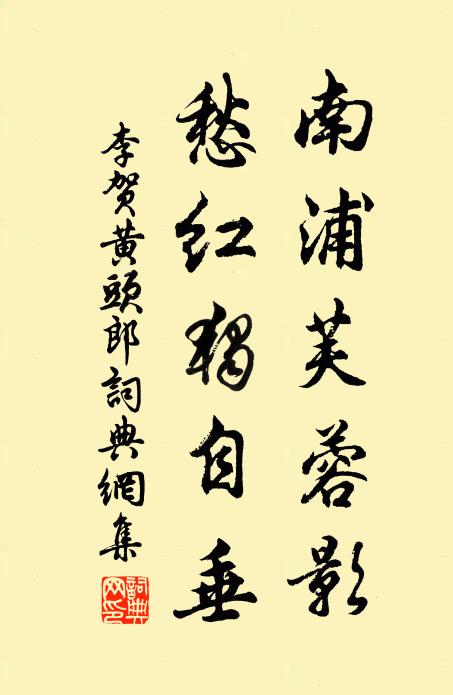 南浦芙蓉影
愁红獨自垂
李贺黄頭郎詞典網集
詞典網印